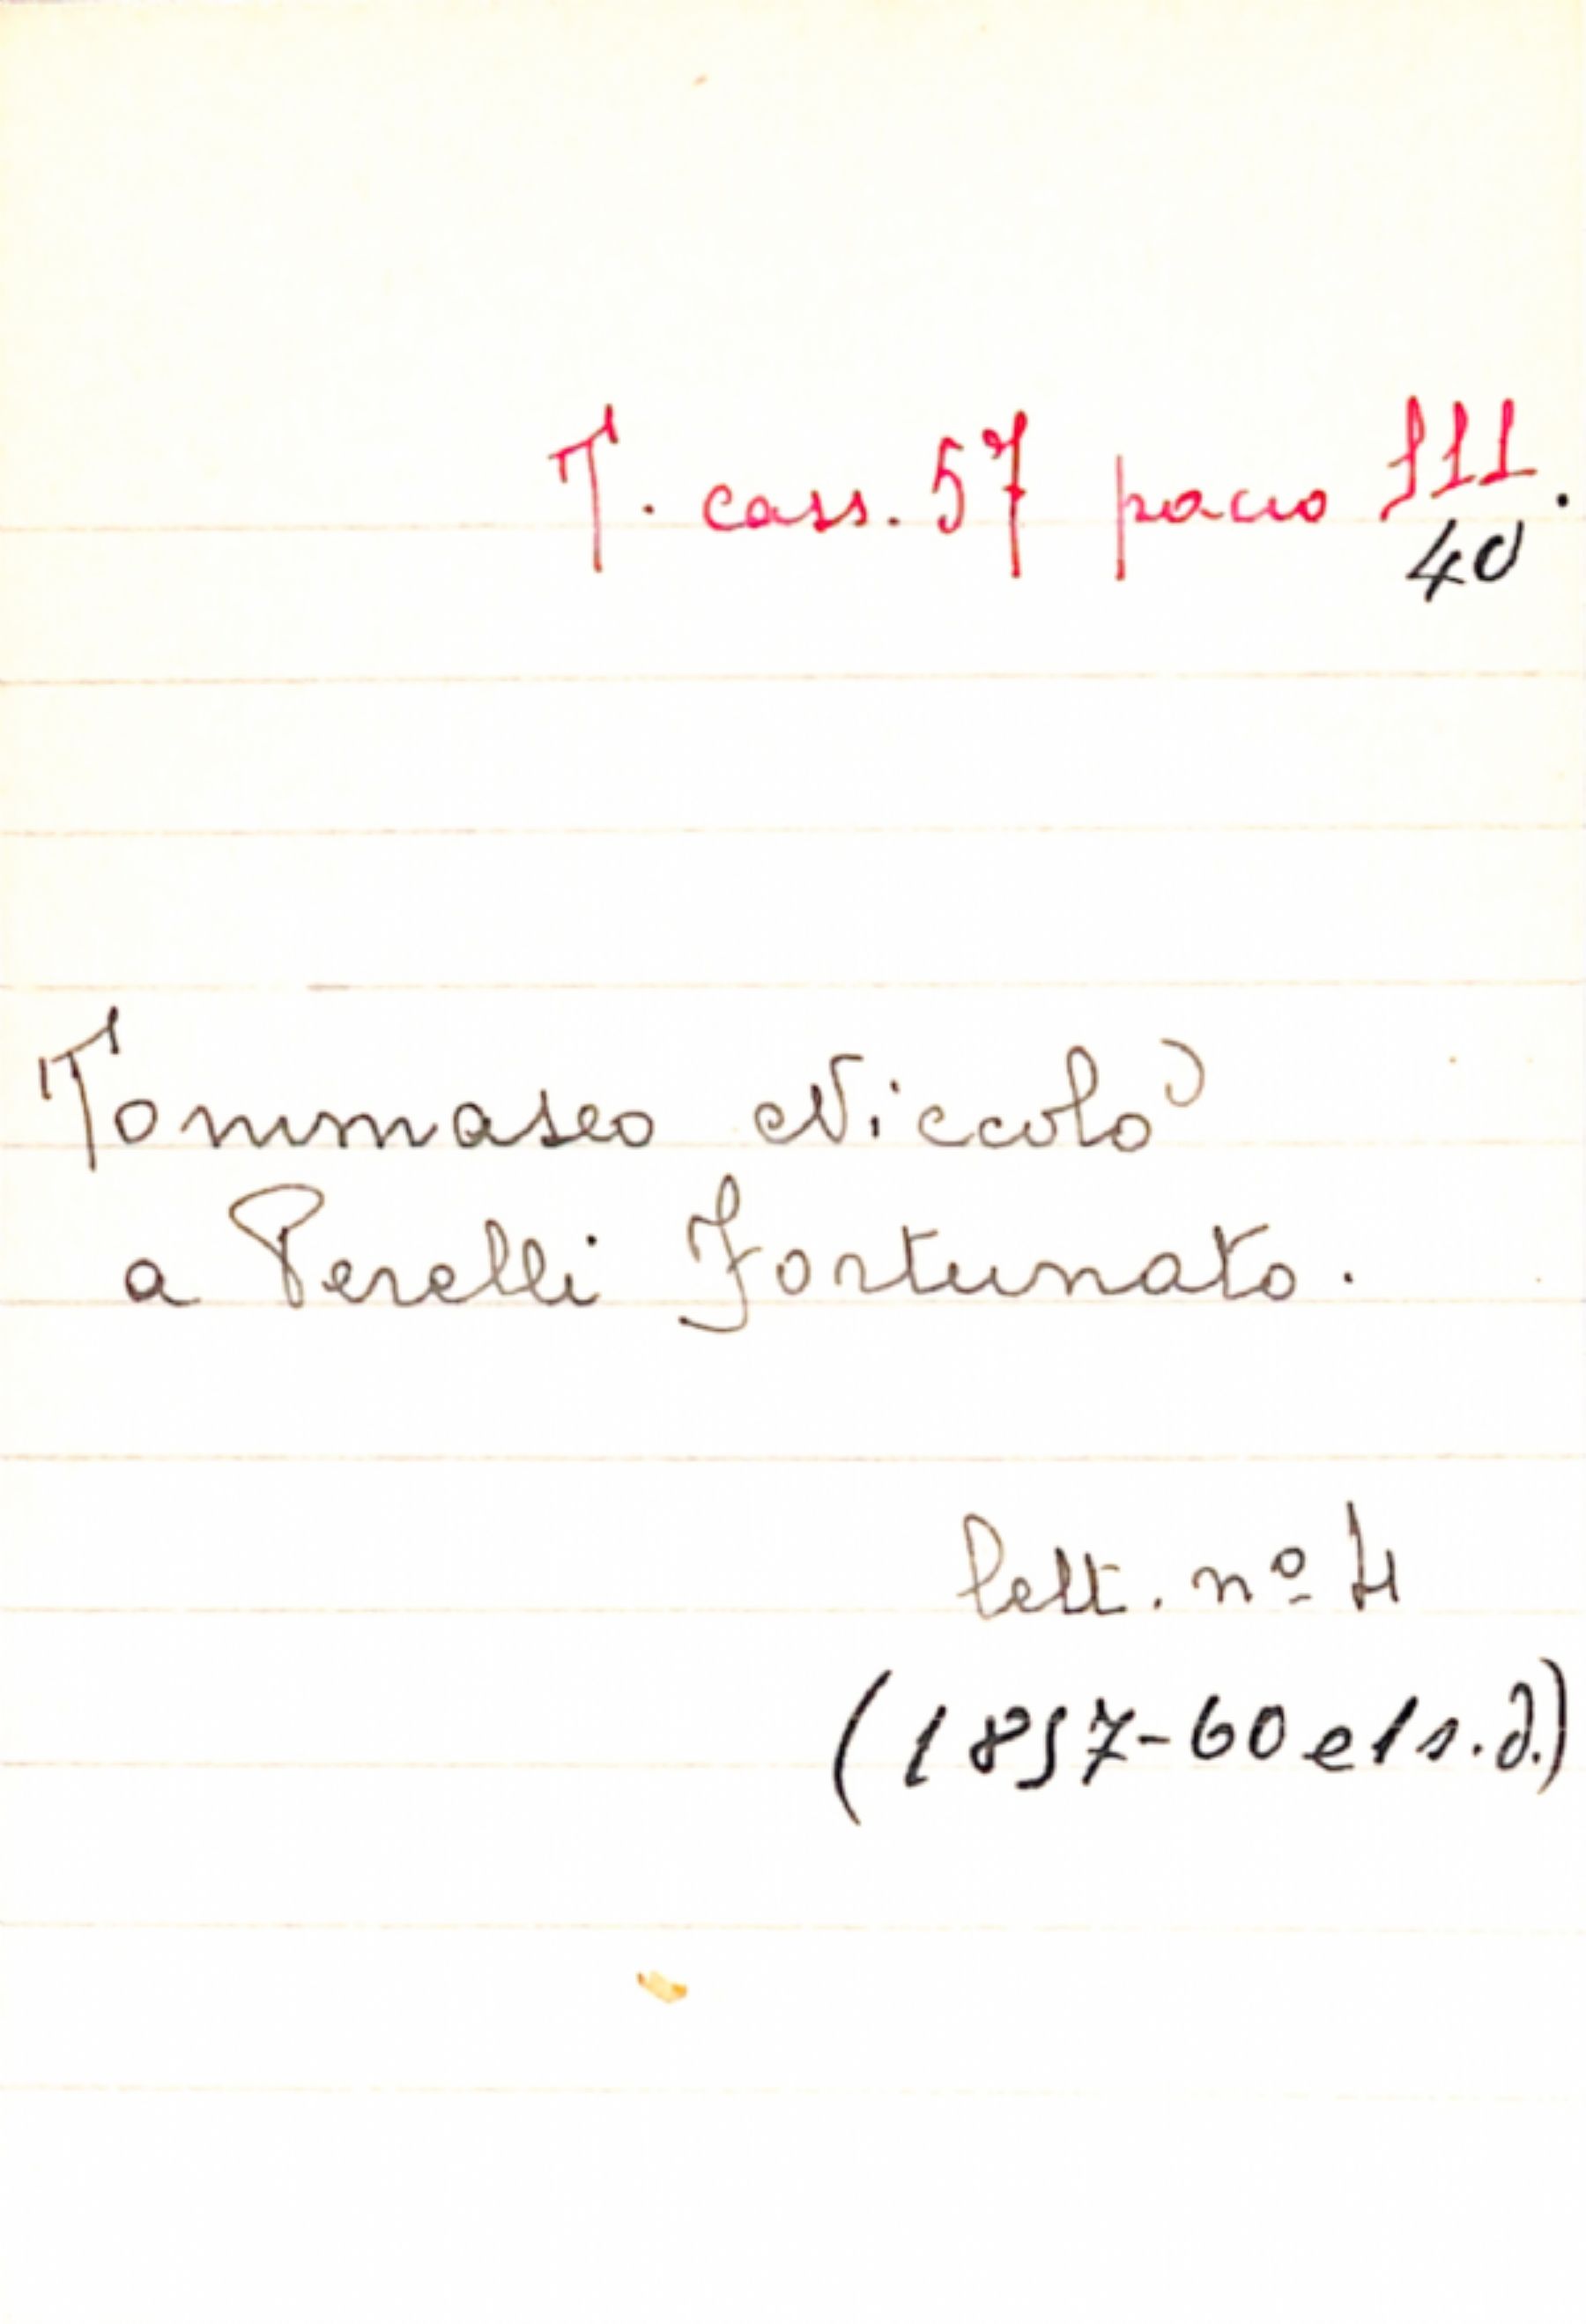 T. cass. 57 pacco III.
40
Tommaseo Niccolò
a Perelli Fortunato.
lett. nº 4
(1857-60 e 1 s.d.)